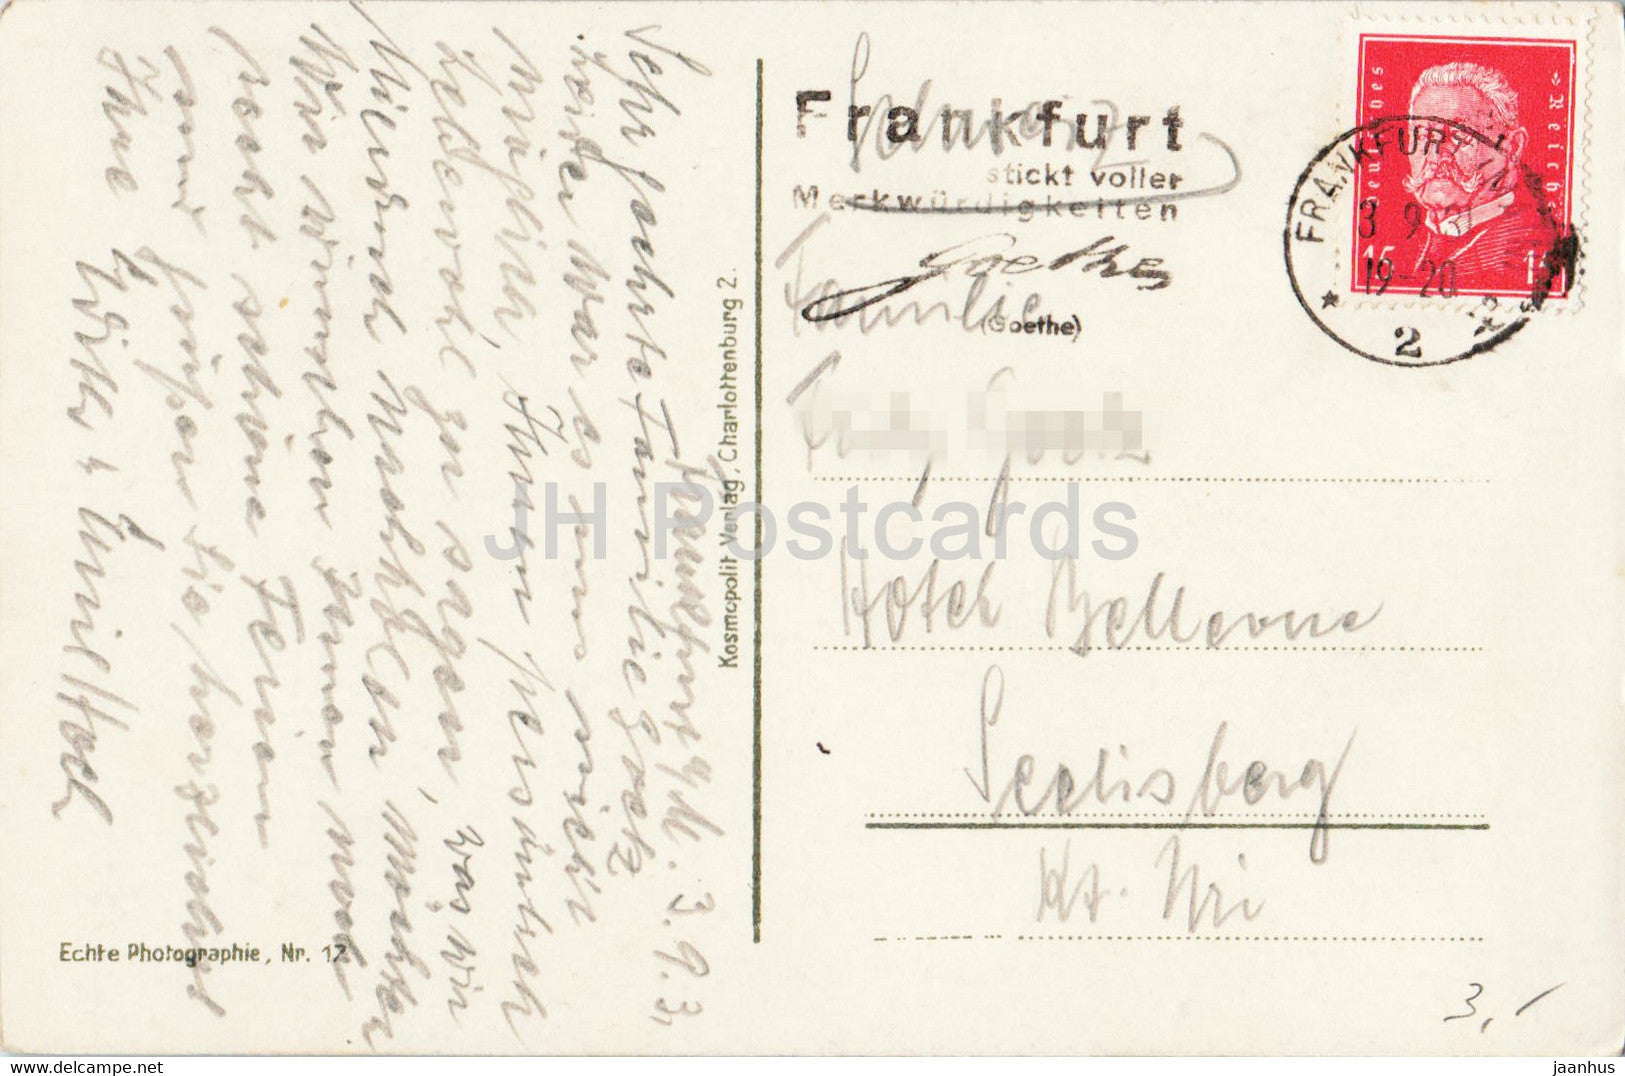 Frankfurt a/M. 3.9.31
Sehr geehrte Familie Goetz
Leider war es uns nicht
möglich, Ihnen persönlich
Lebewohl zu sagen, was wir
hiermit nachholen möchten
Wir wünschen Ihnen noch
recht schöne Ferien
und grüssen Sie herzlichst
Ihre
Echte Photographie, Nr. 12
Kosmopolit Verlag, Charlottenburg 2.
Schweiz
Frankfurt
stickt voller
Merkwürdigkeiten
Goethe
(Goethe)
Deutsches Reich
15 15
FRANKFURT
3.9.31
19-20
2
Familie
Hotel Bellevue
Seelisberg
Kt. Uri
3,-
JH Postcards
jaanhus www.delcampe.net